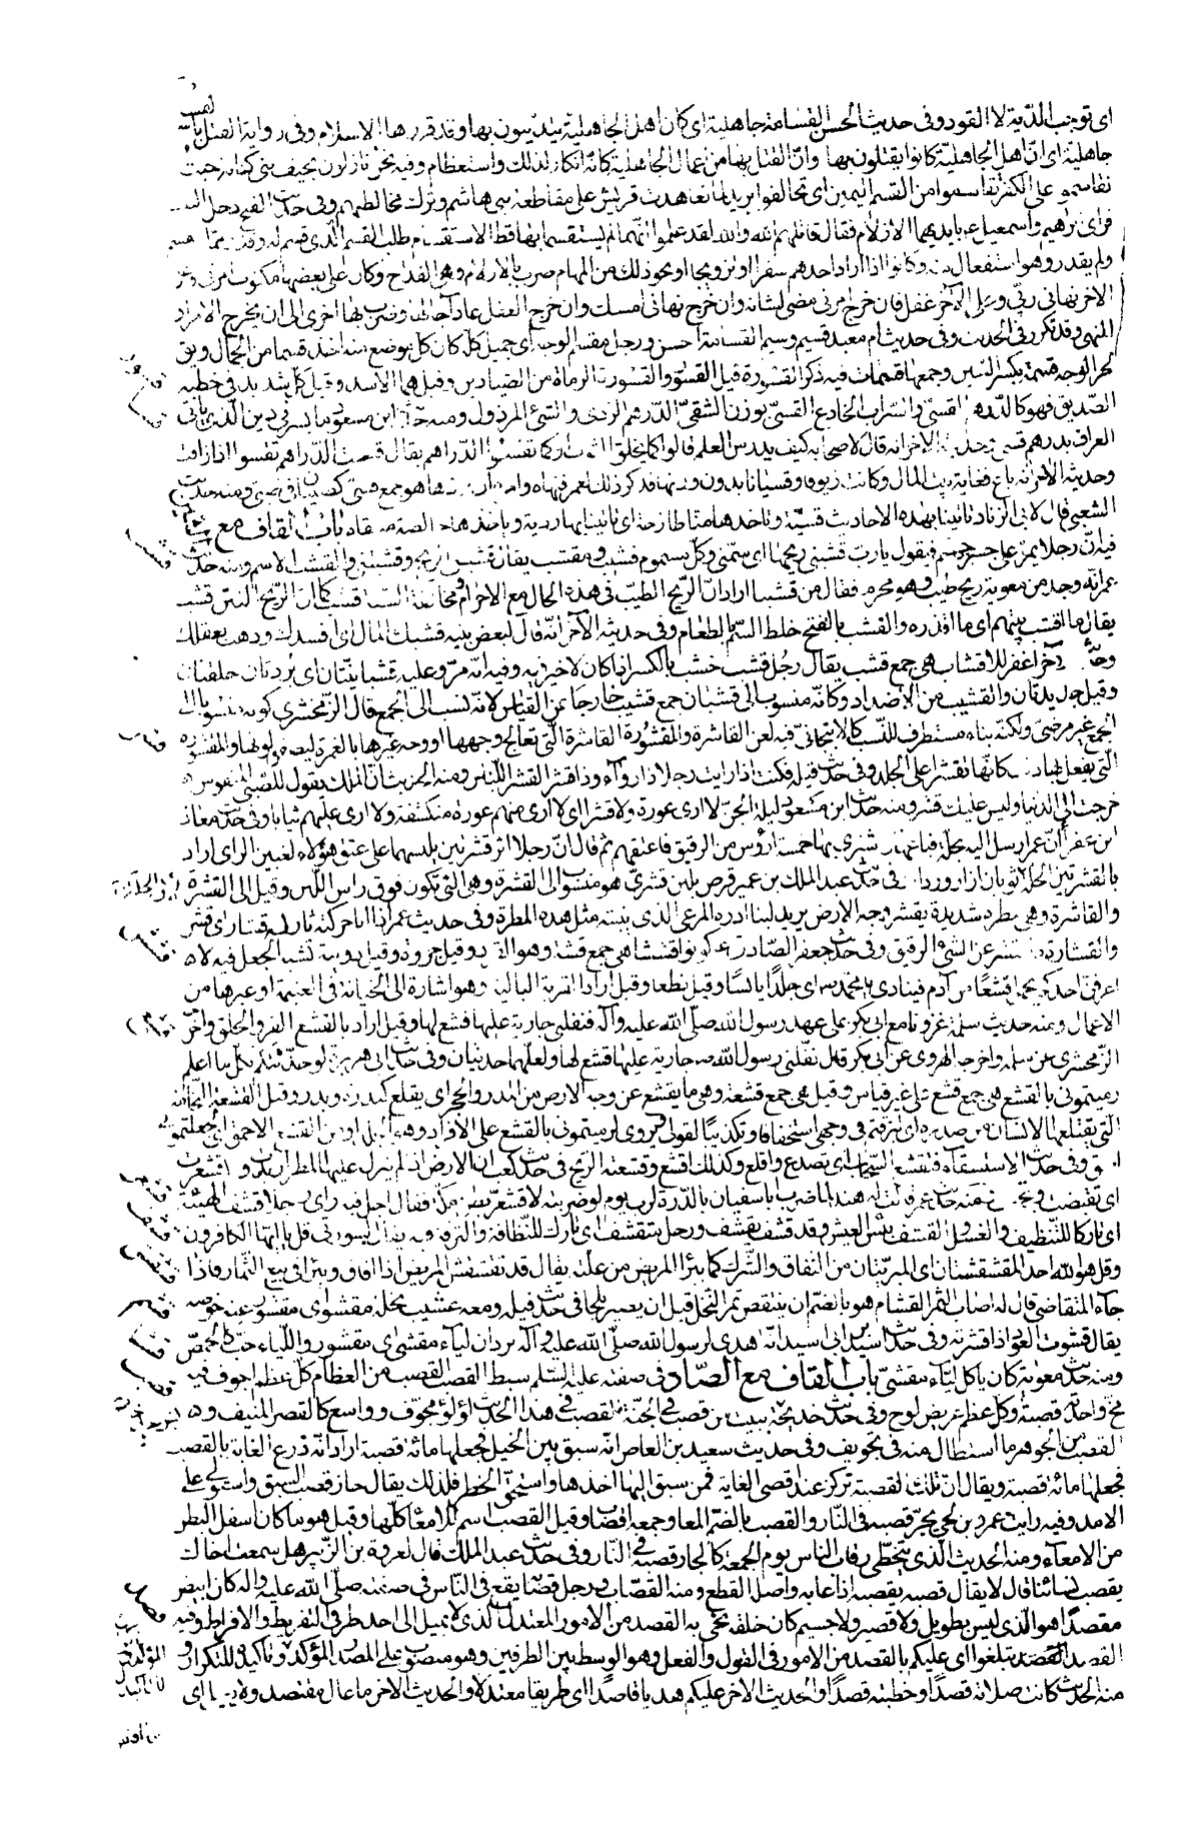 اى توجب الدّية لا القود وفى حديث الحسن القسامة جاهلية اى كان اهل الجاهلية يتدينون بها وقد قررها الاسلام وفى رواية القتل بالقسامة
جاهلية اى انّ اهل الجاهلية كانوا يقتلون بها وانّ القتل بها من اعمال الجاهلية كانّه انكار لذلك واستعظام وفيه نحن نازلون بخيف بنى كنانة حيث
تقاسموا على الكفر تقاسموا من القسم اليمين اى تحالفوا يريد لما تعاهدت قريش على مقاطعة بنى هاشم وترك مخالطتهم وفى حديث الفتح دخل البيت
فراى ابراهيم واسمعيل بايديهما الازلام فقال قاتلهم الله والله لقد علموا انّهما لم يستقسما بها قط الاستقسام طلب القسم الّذى قسم له وقدر مما قسم
ولم يقدر وهو استفعال منه وكانوا اذا اراد احدهم سفرا او تزويجا او نحو ذلك من المهام ضرب بالازلام وهى القداح وكان على بعضها مكتوب امرنى ربى وعلى
الاخر نهانى ربّى وعلى الآخر غفل فان خرج امرنى مضى لشانه وان خرج نهانى امسك وان خرج الغفل عاد اجالها وضرب بها اخرى الى ان يخرج الامر او
النهى وقد تكرر فى الحديث وفى حديث ام معبد قسيم وسيم القسامة الحسن ورجل مقسم الوجه اى جميل كلّه كان كل موضع منه اخذ قسما من الجمال ويق
لحر الوجه قسمة بكسر السّين وجمعها قسمات فيه ذكر القسورة قيل القسور والقسورة الرماة من الصيادين وقيل هما الاسد وقيل كل شديد فى خطبة
الصدّيق فهو كالدرهم القسىّ والسّراب الخادع القسىّ بوزن الشقىّ الدّرهم الردى والشىء المرذول ومنه حديث ابن مسعود ما يسرنى دين الّذى ياتى
العراق بدرهم قسى وحديثه الاخر انه قال لاصحابه كيف يدرس العلم قالوا كما يخلق الثوب او كما تقسوا الدّراهم يقال قست الدّراهم تقسوا اذا زافت
وحديثه الاخر انّه باع نفاية بيت المال وكانت زيوفا وقسيانا بدون وزنها فذكر ذلك لعمر فنهاه وامره ان يردها هو جمع قسى كصبيان فى صبى ومنه حديث
الشعبى قال لابى الزناد تاتينا بهذه الاحاديث قسيّة وتاخذها منا طازجة اى تاتينا بها ردية وتاخذها خالصة منقاة باب القاف مع الشين
فيه انّ رجلا يمر على جسر جهنم فيقول يا رب قشبنى ريحها اى سمّنى وكلّ مسموم قشيب ومقشب يقال قشبتنى الريح وقشبتنى والقشب الاسم ومنه حديث
عمر انّه وجد من معوية ريح طيب وهو محرم فقال من قشبنا اراد انّ الرّيح الطيّب فى هذه الحال مع الاحرام ومخالفة السنة قشب كما ان الرّيح النتن قشب
يقال ما اقشب بيتهم اى ما اقذره والقشب بالفتح خلط السّم بالطعام وفى حديثه الآخر انّه قال لبعض بنيه قشبك المال اى افسدك وذهب بعقلك
وحديثه الآخر اغفر للاقشاب هى جمع قشب يقال رجُل قشب خشب بالكسر اذا كان لا خير فيه وفيه انّه مرّ وعليه قشبانيّتان اى بردتان خلقتان
وقيل جديدتان والقشيب من الاضداد وكانّه منسوب الى قشبان جمع قشيب خارجا عن القياس لانّه نسب الى الجمع قال الزّمخشرى كونه منسوبا الى
الجمع غير مرضى ولكنّه بناء مستطرف للنّسب كالانبجانى فيه لعن القاشرة والمقشورة القاشرة الّتى تعالج وجهها او وجه غيرها بالغمرة ليصفو لونها والمقشورة
الّتى يفعل بها ذلك كانّها تقشر اعلى الجلد وفى حديث قيلة فكنت اذا رايت رجلا ذا رواء وذا قشر القشر اللّباس ومنه الحديث انّ الملك يقول للصّبىّ المنفوس
خرجت الى الدنيا وليس عليك قشر ومنه حديث ابن مسعود ليلة الجنّ لا ارى عورة ولا قشرا اى لا ارى منهم عورة منكشفة ولا ارى عليهم ثيابا وفى حديث معاذ
ابن عفراء انّ عمر ارسل اليه بحلّة فباعها واشترى بها خمسة ارؤس من الرقيق فاعتقهم ثم قال انّ رجلا اثر قشرتين يلبسهما على عتق هؤلاء لغبين الراى اراد
بالقشرتين الحلّة لان الحلّة ثوبان ازار ورداء وفى حديث عبد الملك بن عمير قرص بلبن قشرىّ هو منسوب الى القشرة وهى التى تكون فوق راس اللّبن وقيل الى القشرة
والقاشرة وهى مطرة شديدة يقشر وجه الارض يريد لبنا ادره المرعى الذى ينبته مثل هذه المطرة وفى حديث عمر اذا انا حركته ثار له قشار اى قشر
والقشارة ما تقشر عن الشئ الرقيق وفى حديث جعفر الصّادق كونوا قششا هى جمع قشة وهو القرد وقيل جروه وقيل دويبة تشبه الجعل فيه لا
اعرفنّ احدكم يحمل قشعًا من آدم فينادى يا محمد اى جلدًا يابسًا وقيل نطعا وقيل اراد القربة البالية وهو اشارة الى الخيانة فى الغنيمة او غيرها من
الاعمال ومنه حديث سلمة غزونا مع ابى بكر على عهد رسول الله صلّى الله عليه وآله فنفلنى جارية عليها قشع لها وقيل اراد بالقشع الفرو الخلق واخرجه
الزّمخشرى عن سلمة واخرجه الهروى عن ابى بكر قال نفلنى رسول الله صـ جارية عليها قشع لها ولعلهما حديثان وفى حديث ابى هريرة لو حدّثتكم بكل ما اعلم
رميتمونى بالقشع هى جمع قشع على غير قياس وقيل هى جمع قشعة وهى ما يقشع عن وجه الارض من المدر والحجر اى يقلع كبدرة وبدر وقيل القشعة النخامة
الّتى يقتلعها الانسان من صدره اى لبزقتم فى وجهى استخفافا وتكذيبًا لقولى ويروى لرميتمونى بالقشع على الافراد وهو الجلد او من القشع الاحمق اى لجعلتمونى
احمق وفى حديث الاستسقاء فتقشع السّحاب اى تصدع واقلع وكذلك اقشع وقشعته الرّيح فى حديث كعب ان الارض اذا لم ينزل عليها المطر اربدت واقشعرت
اى تقبضت وتجمعت ومنه حديث عمر قالت له هند لما ضرب ابا سفيان بالدّرة لرب يوم لو ضربته لاقشعر بطن مكّة فقال اجل فيه راى رجلا قشف الهيئة
اى تاركا للتّنظيف والغسل والقشف يبس العيش وقد قشف يقشف ورجل متقشف اى تارك للنّظافة والترفه فيه يقال لسورتى قل يا ايّها الكافرون
وقل هو الله احد المقشقشتان اى المبرّئتان من النّفاق والشّرك كما يبرأ المريض من علّته يقال قد تقشقش المريض اذا افاق وبرأ فى بيع الثّمار فاذا
جاء المتقاضى قال له اصاب الثمر القشام هو بالضّم ان ينتقص ثمر النّخل قبل ان يصير بلحا فى حديث قيلة ومعه عسيب نخلة مقشو اى مقشور عنه خوصه
يقال قشوت العود اذا قشرته وفى حديث اسيد بن ابى اسيد انّه اهدى لرسول الله صلّى الله عليه وآله بودان لياء مقشى اى مقشور واللّياء حبّ كالحمّص
ومنه حديث معوية كان ياكل لياء مقشىّ باب القاف مع الصّاد فى صفته عليه السّلم سبط القصب القصب من العظام كل عظم اجوف فيه
مخ واحدته قصبة وكل عظم عريض لوح وفى حديث خديجة ببيت من قصب فى الجنّة القصب فى هذا الحديث لؤلؤ مجوّف واسع كالقصر المنيف و
القصب من الجوهر ما استطال منه فى تجويف وفى حديث سعيد بن العاص انّه سبق بين الخيل فجعلها مائة قصبة اراد انّه ذرع الغاية بالقصب
فجعلها مائة قصبة ويقال انّ تلك القصبة تركز عند اقصى الغاية فمن سبق اليها اخذها واستحقّ الخطر فلذلك يقال حاز قصب السّبق واستولى على
الامد وفيه رايت عمرو بن لحى يجرّ قصبه فى النّار والقصب بالضّم المعا وجمعه اقصاب وقيل القصب اسم للامعاء كلّها وقيل هو ما كان اسفل البطن
من الامعاء ومنه الحديث الّذى يتخطى رقاب الناس يوم الجمعة كالجار قصبه فى النّار وفى حديث عبد الملك قال لعروة بن الزّبير هل سمعت اخاك
يقصب نساءنا قال لا يقال قصبه يقصبه اذا عابه واصل القطع ومنه القصّاب ورجل قصّابة يقع فى النّاس فى صفته صلّى الله عليه واله كان ابيض
مقصدًا هو الّذى ليس بطويل ولا قصير ولا جسيم كان خلقه نحى به القصد من الامور والمعتدل الّذى لا يميل الى احد طرفى التّفريط والافراط وفيه
القصد القصد تبلغوا اى عليكم بالقصد من الامور فى القول والفعل وهو الوسط بين الطرفين وهو منصوب على المصدر المؤكد وتاكيده للتكرار و
منه الحديث كانت صلاته قصدًا وخطبته قصدًا والحديث الاخر عليكم هديا قاصدًا اى طريقا معتدلا والحديث الاخر ما عال مقتصد ولا يعيل اى